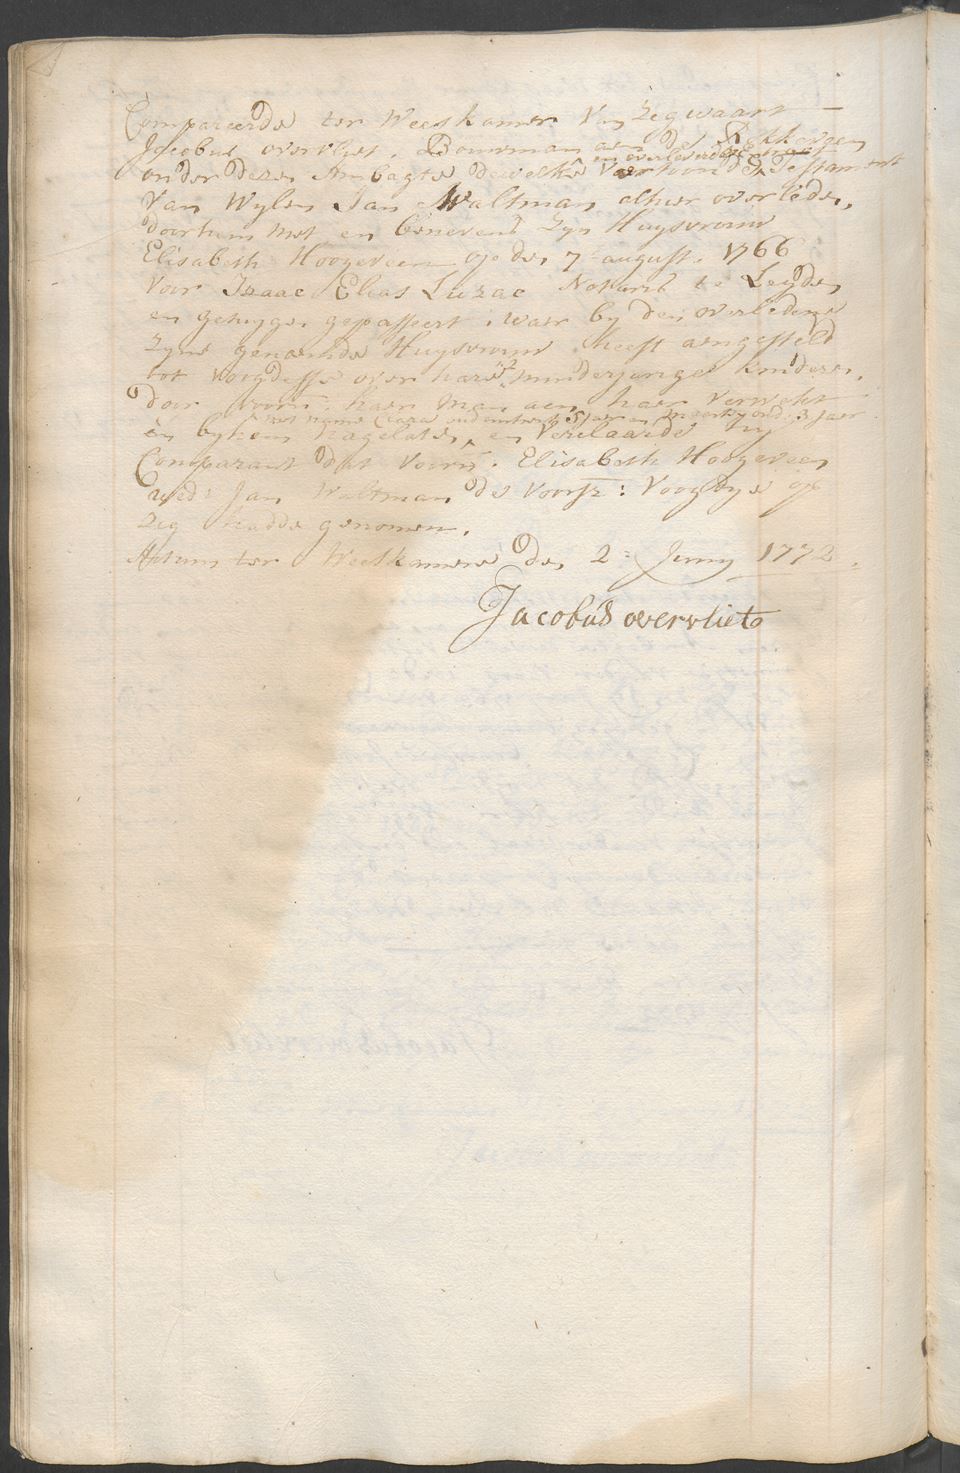 Compareerde ter Weeskamer van Zegwaart —
Jacobus overvliet. Bouwman aen de Rokkeveen
en overleverde
onder dezen Ambagte dewelke vertoonde Testament
van Wylen Jan Waltman alhier overleden,
door hem met en benevens Zyn Huysvrouw
Elisabeth Hoogeveen op den 7e august. 1766
voor Isaac Elias Luzac Notaris te Leyden
en getuygen gepasseert, waer by den overledene
zyne genaemde Huysvrouw heeft aengesteld
tot voogdesse over hare minderjarige kinderen,
door voorn. haer man aen haer verwekt
met name Clara oud omtrent 5 jaer en oud 3 jaer
en by hem nagelaten, en verclaarde hy
Comparant dat voorn. Elisabeth Hoogeveen
wede Jan Waltman de voorsz: voogdye op
zig hadde genomen.
Actum ter Weeskamere den 2e Juny 1772.
Jacobus overvliet